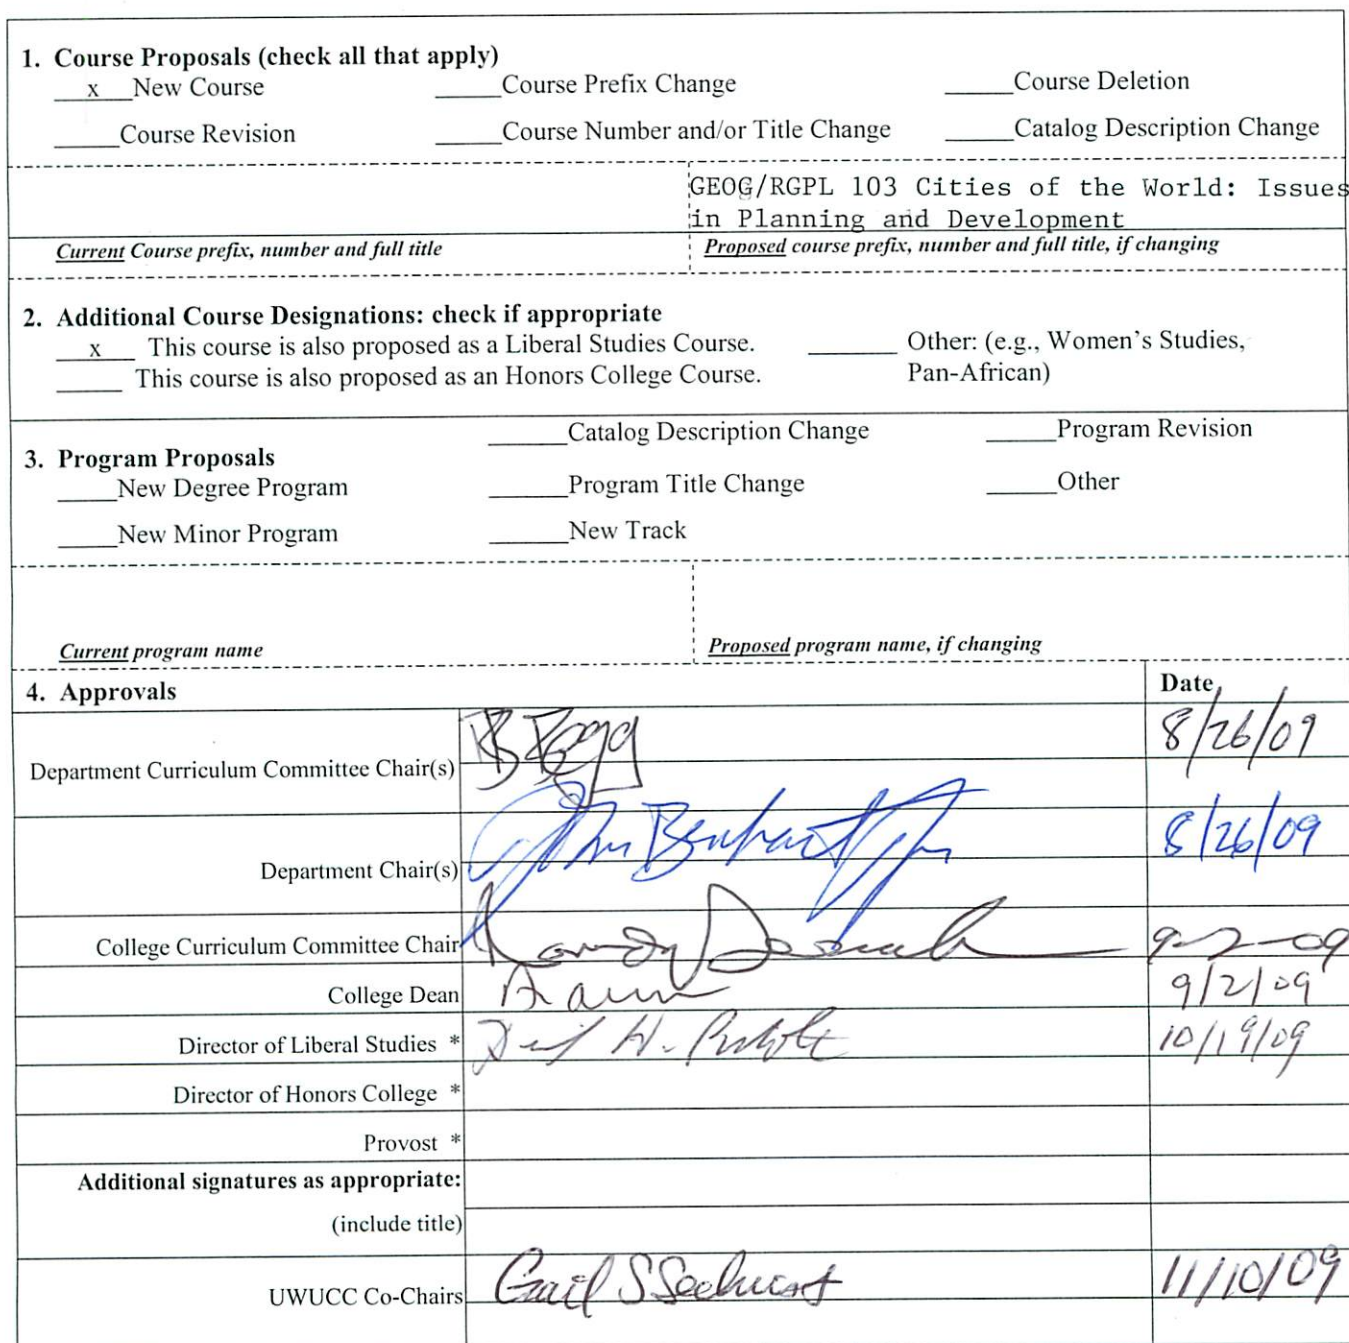 1. Course Proposals (check all that apply)
__x__New Course _____Course Prefix Change _____Course Deletion
_____Course Revision _____Course Number and/or Title Change _____Catalog Description Change
GEOG/RGPL 103 Cities of the World: Issues
in Planning and Development
Current Course prefix, number and full title Proposed course prefix, number and full title, if changing
2. Additional Course Designations: check if appropriate
__x__ This course is also proposed as a Liberal Studies Course. _____ Other: (e.g., Women's Studies,
_____ This course is also proposed as an Honors College Course. Pan-African)
_____Catalog Description Change _____Program Revision
3. Program Proposals
_____New Degree Program _____Program Title Change _____Other
_____New Minor Program _____New Track
Current program name Proposed program name, if changing
4. Approvals Date
Department Curriculum Committee Chair(s) 8/26/09
Department Chair(s) John Benhart 8/26/09
College Curriculum Committee Chair 9-2-09
College Dean 9/2/09
Director of Liberal Studies * 10/19/09
Director of Honors College *
Provost *
Additional signatures as appropriate:
(include title)
UWUCC Co-Chairs Gail S Sechrist 11/10/09